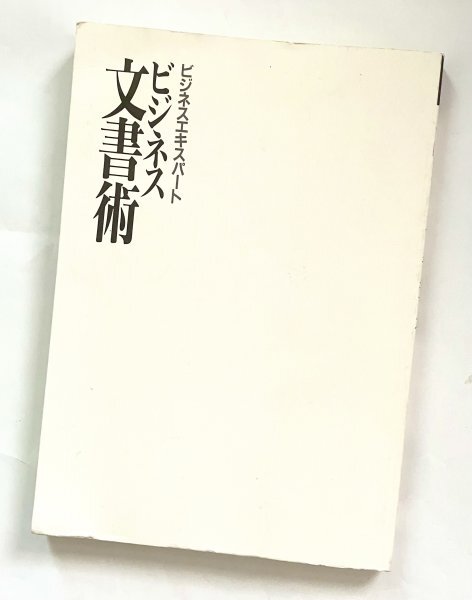 ビジネスエキスパート
ビジネス
文書術